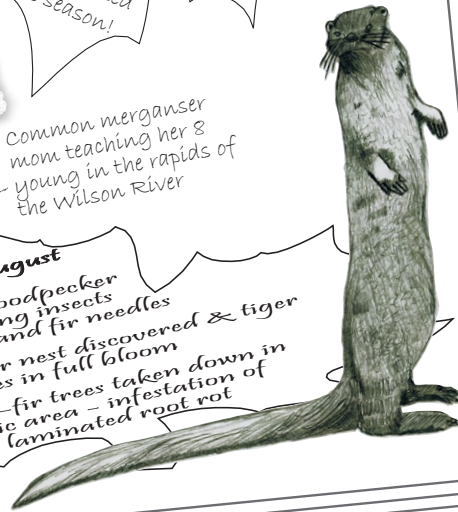 season!
Common merganser
mom teaching her 8
young in the rapids of
the Wilson River
and fir needles
nest discovered & tiger
in full bloom
fir trees taken down in
area – infestation of
laminated root rot